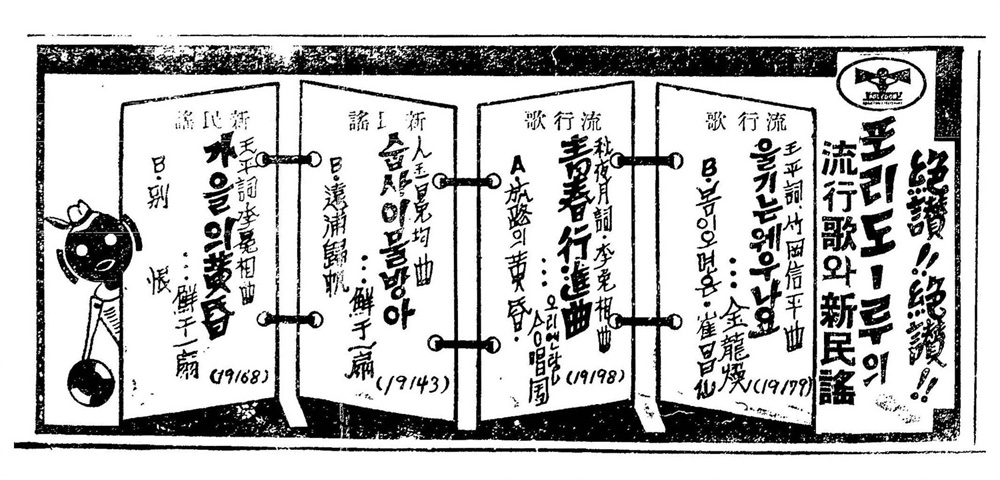 絶讃!!絶讃!!
포리도ー루의
流行歌와新民謠
流行歌
王平詞·竹岡信平曲
울기는웨우나요
…金龍煥
(19179)
B·봄이오면은·崔昌仙
流行歌
秋夜月詞·李冕相曲
青春行進曲
…오리엔탈合唱團
(19198)
A·放浪의黄昏·
新民謠
均曲
숩사이물방아
…鮮于一扇
(19143)
B·遠浦歸帆
新民謠
王平詞·李冕相曲
가을의黄昏
…鮮于一扇
(19168)
B·別恨